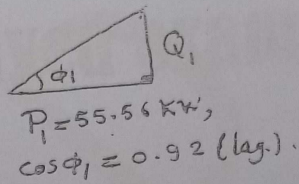 Q₁
ϕ₁
P₁ = 55.56 kW,
cosϕ₁ = 0.92 (lag.).